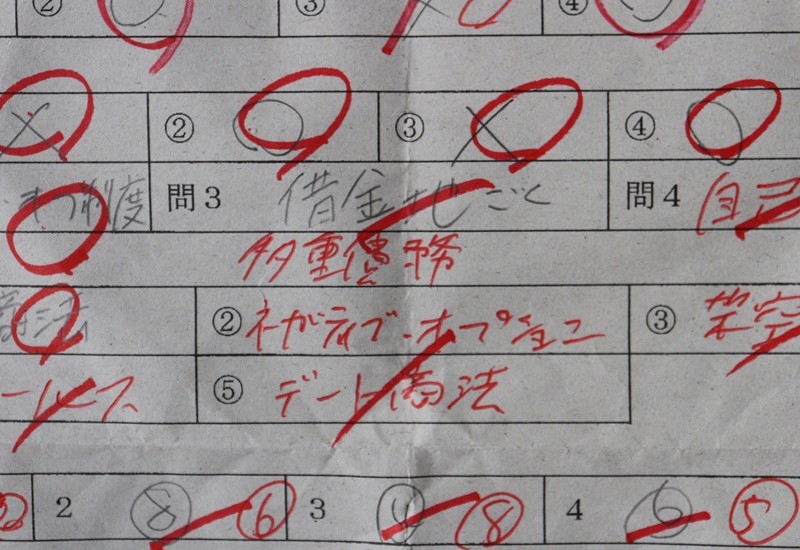 ② ③ ④
× ② ○ ③ × ④ ○
制度 問3 借金地ごく 問4 自己
多重債務
商法 ② ネガティブ・オプション ③ 架空
ールス ⑤ デート商法
2 ⑧ ⑥ 3 ④ ⑧ 4 ⑥ ⑤